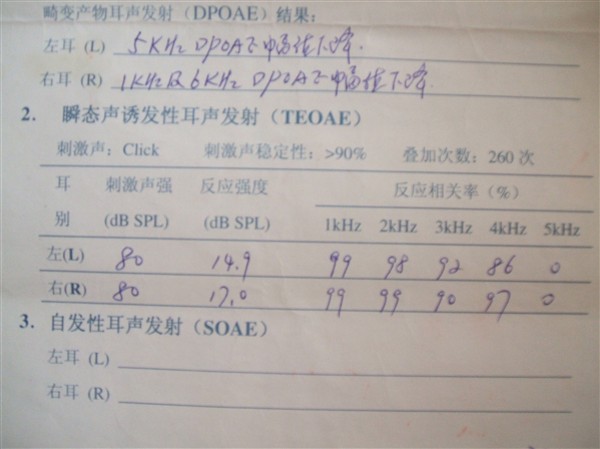 畸变产物耳声发射（DPOAE）结果：
左耳 (L) 5KHz DPOAE幅值下降.
右耳 (R) 1KHz及6KHz DPOAE幅值下降.
2. 瞬态声诱发性耳声发射（TEOAE）
刺激声：Click 刺激声稳定性：>90% 叠加次数：260 次
耳 刺激声强 反应强度 反应相关率（%）
别 (dB SPL) (dB SPL) 1kHz 2kHz 3kHz 4kHz 5kHz
左(L) 80 14.9 99 98 92 86 0
右(R) 80 17.0 99 99 90 97 0
3. 自发性耳声发射（SOAE）
左耳 (L)
右耳 (R)